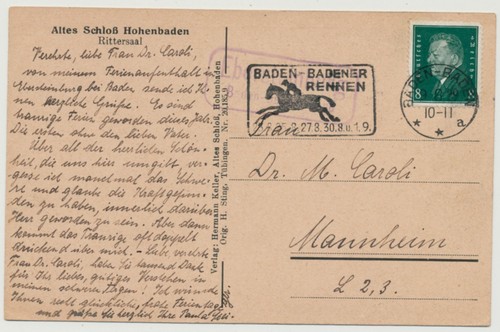 Altes Schloß Hohenbaden
Rittersaal
Verehrte, liebe Frau Dr. Caroli,
von meinem Ferienaufenthalt in
bei Baden sende ich Ihnen
herzliche Grüße. Es sind
traurige Ferien geworden dieses Jahr.
Die ersten ohne den lieben Vater.
Über all der herrlichen Schön-
heit, die uns hier umgibt ver-
gesse ich manchmal das Schwe-
re und glaube die Kraft gefun-
den zu haben, innerlich darüber
Herr geworden zu sein. Aber dann
kommt das Traurige oft doppelt
drückend über mich. – Liebe verehrte
Frau Dr. Caroli, haben Sie tausend Dank
für Ihr liebes, gütiges Verstehen in
meinen schweren Tagen! Ich wünsche
Ihnen recht glückliche, frohe Ferientage
und grüße Sie herzlich Ihre
Verlag: Hermann Keller, Altes Schloß, Hohenbaden
Orig. H. Sting, Tübingen, Nr.
BADEN-BADENER
RENNEN
27.8.30.8.u.1.9.
BADEN-BADEN
10-11
a
8
8
Frau
Dr. M. Caroli
Mannheim
L 2, 3.